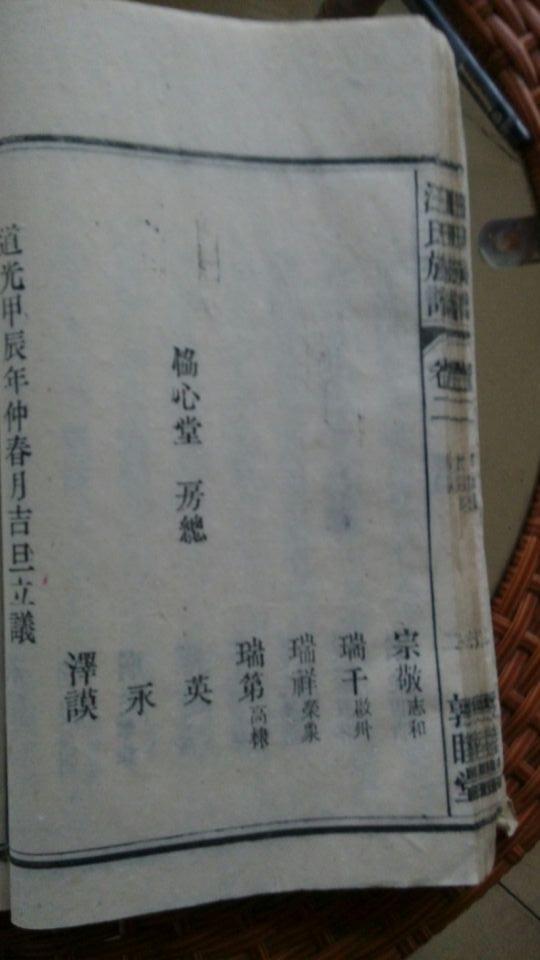 汪氏族譜
卷二
敦睦堂
宗敬志和
瑞干啟州
瑞祥榮業
瑞第高棣
英
永
澤謨
恊心堂 房總
道光甲辰年仲春月吉旦立議